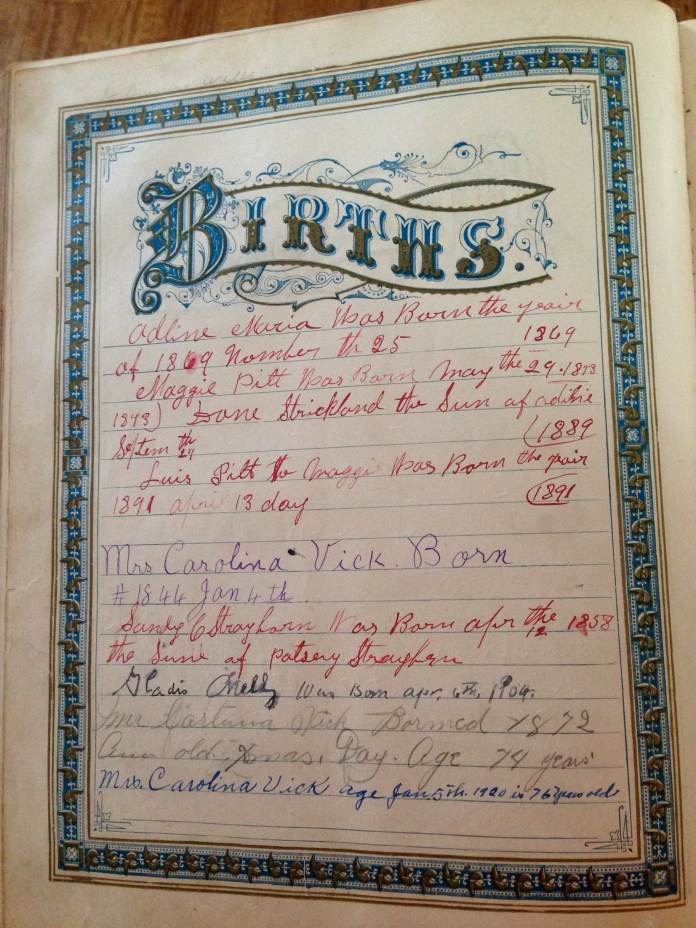 BIRTHS.
Adline Maria Was Born the yeair
of 1869 Nomber th 25 1869
Maggie Pitt Was Born May the 29.1873
1873) Done Strickland the Sun of adline
Septem th 24 (1889
Luis Pitt to Maggie Was Born the yeair
1891 april 13 day (1891
Mrs Carolina Vick. Born
# 1844 Jan 4th
Sandy C Strayhorn Was Born apr the 12 1858
the Sune of patsery Strayhern
Gladis Was Born apr. 6th, 1904.
Mr Vick Borned 1872
old, Xmas, Day. Age 74 years
Mrs. Carolina Vick age Jan. 5th. 1920 is 76 years old